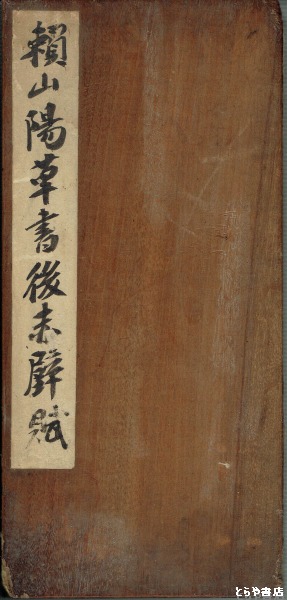 賴山陽草書後赤壁賦
とらや書店